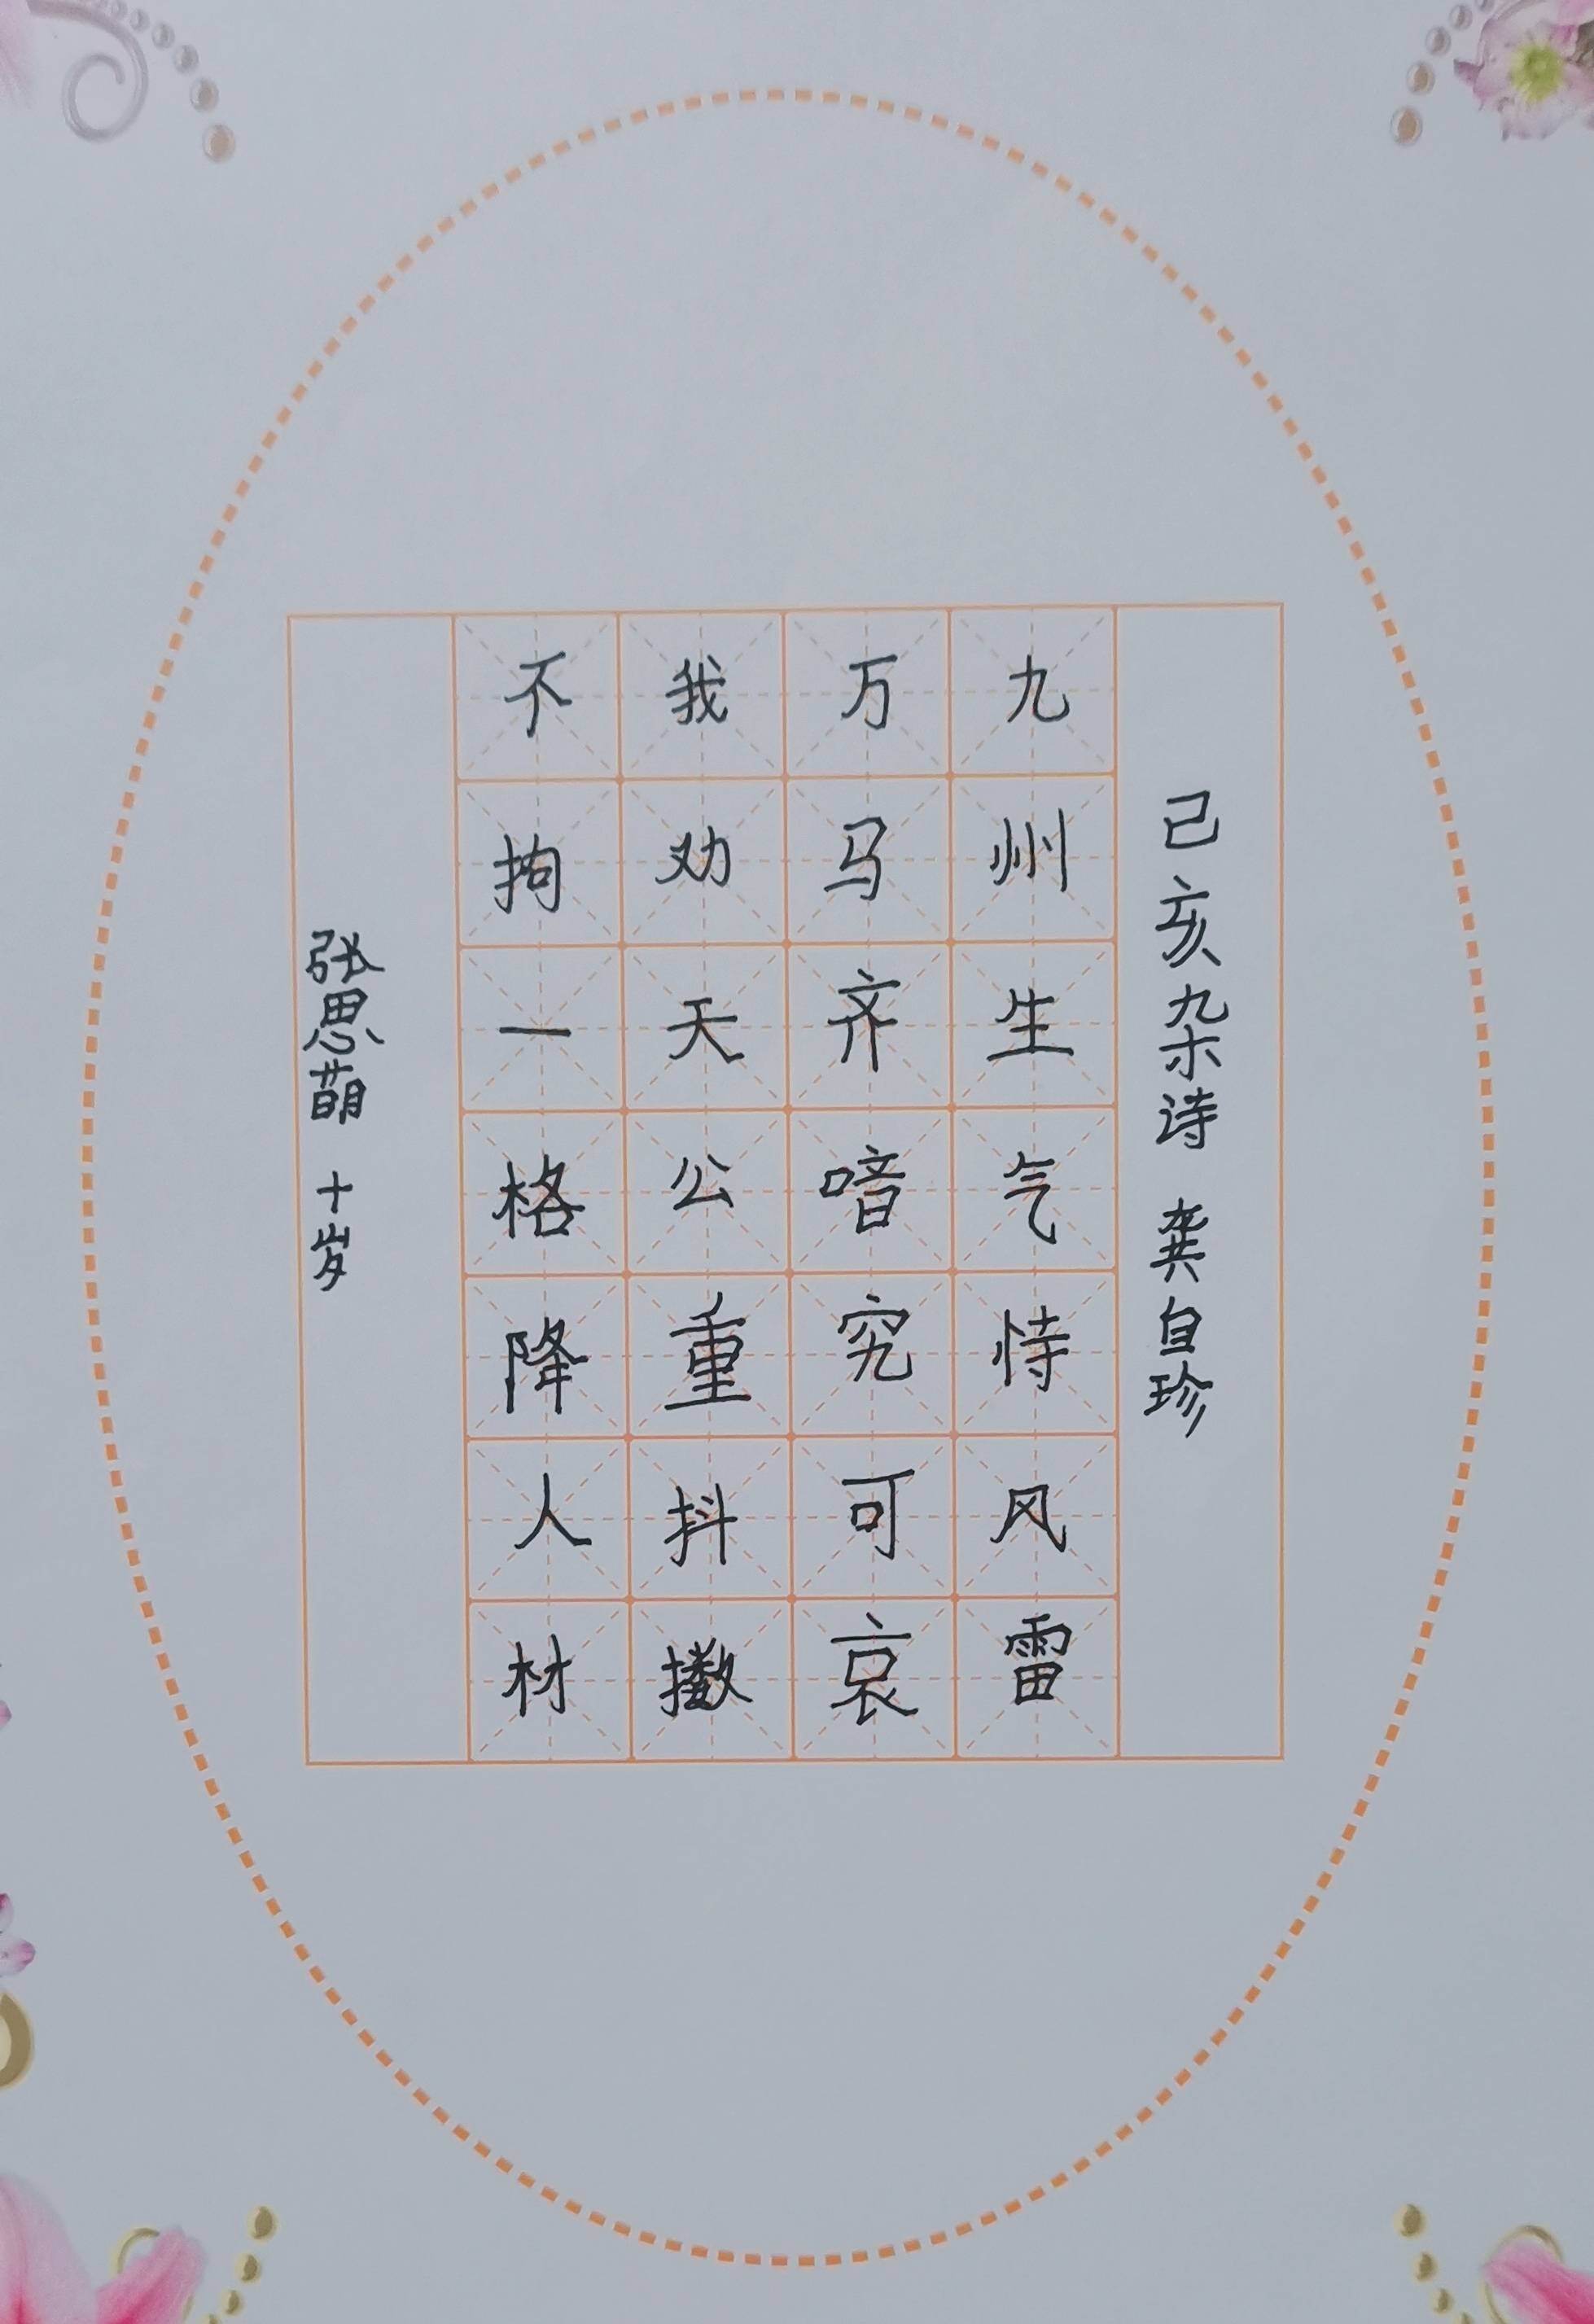 己亥杂诗 龚自珍
九州生气恃风雷
万马齐喑究可哀
我劝天公重抖擞
不拘一格降人材
张思萌 十岁